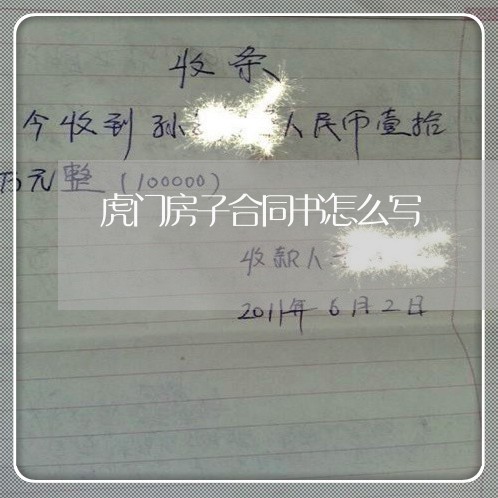 收条
今收到孙 人民币壹拾
万元整(100000)
虎门房子合同书怎么写
收款人
2011年6月2日